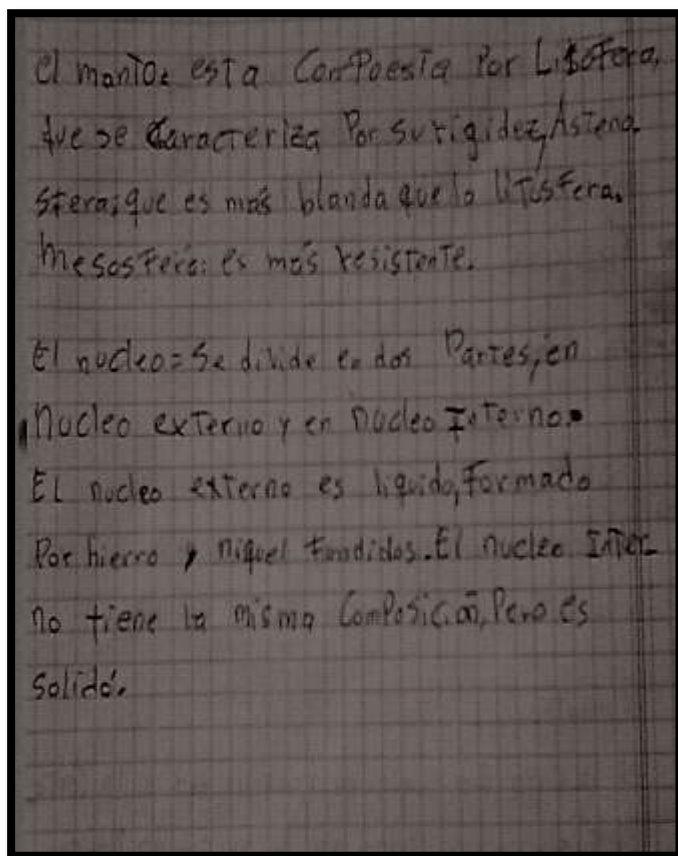 El manto: esta Compoesta Por Litosfera,
que se Caracteriza Por su rigidez, Asteno
sfera: que es más blanda que la litosfera.
Mesosfera: es más resistente.
El nucleo = Se divide en dos Partes, en
nucleo externo y en nucleo Interno.
EL nucleo externo es liquido, formado
Por hierro y niquel fundidos. El nucleo Inter-
no tiene la misma Composición, Pero es
Solido.